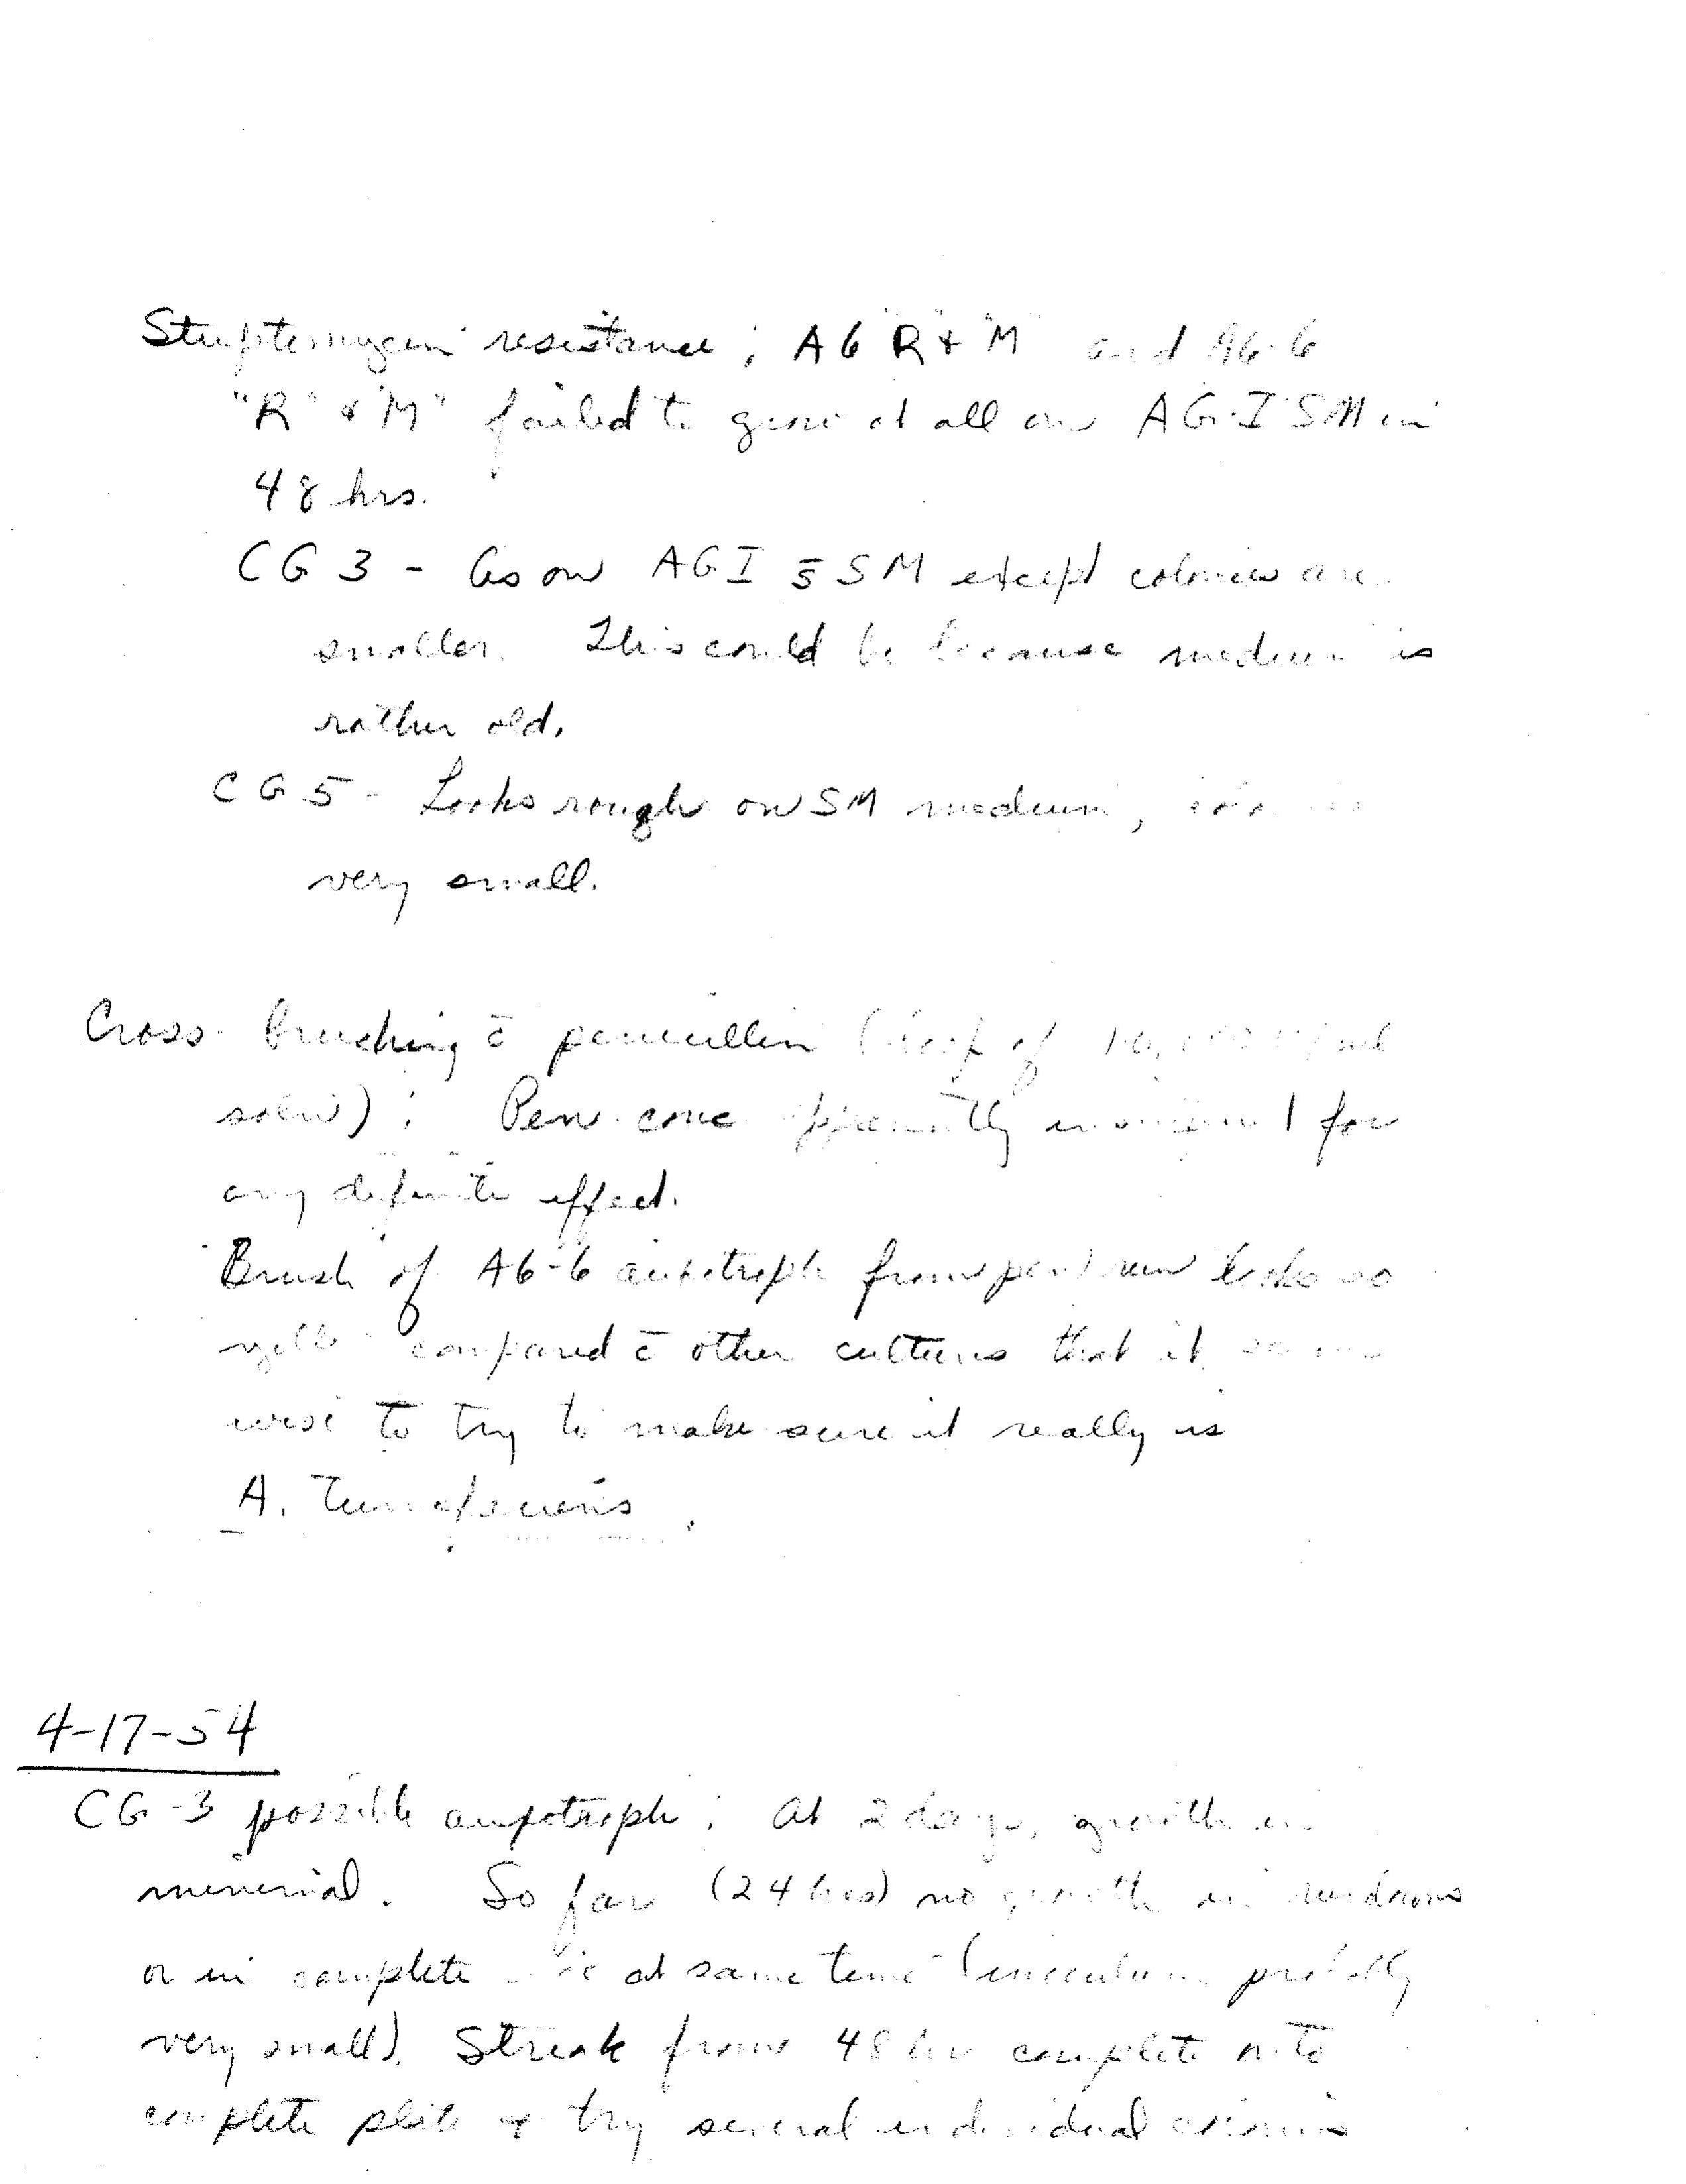 Streptomycin resistance; A6 "R" & "M" and A6-6
"R" & "M" failed to grow at all on AG-I SM in
48 hrs.
CG 3 - As on AGI s̄ SM except colonies are
smaller. This could be because medium is
rather old.
CG 5 - Looks rough on SM medium,
very small.
Cross-brushing c̄ penicillin (loop of
soln); Pen. conc. apparently for
any definite effect.
Brush of A6-6 auxotroph from pen run looks so
compared c̄ other cultures that it seems
wise to try to make sure it really is
A. tumefaciens.
4-17-54
CG-3 possible auxotroph: At 2 days, growth in
minimal. So far (24 hrs) no growth in
or in complete at same time (inoculum probably
very small). Streak from 48 hr complete onto
complete plate & try several individual colonies